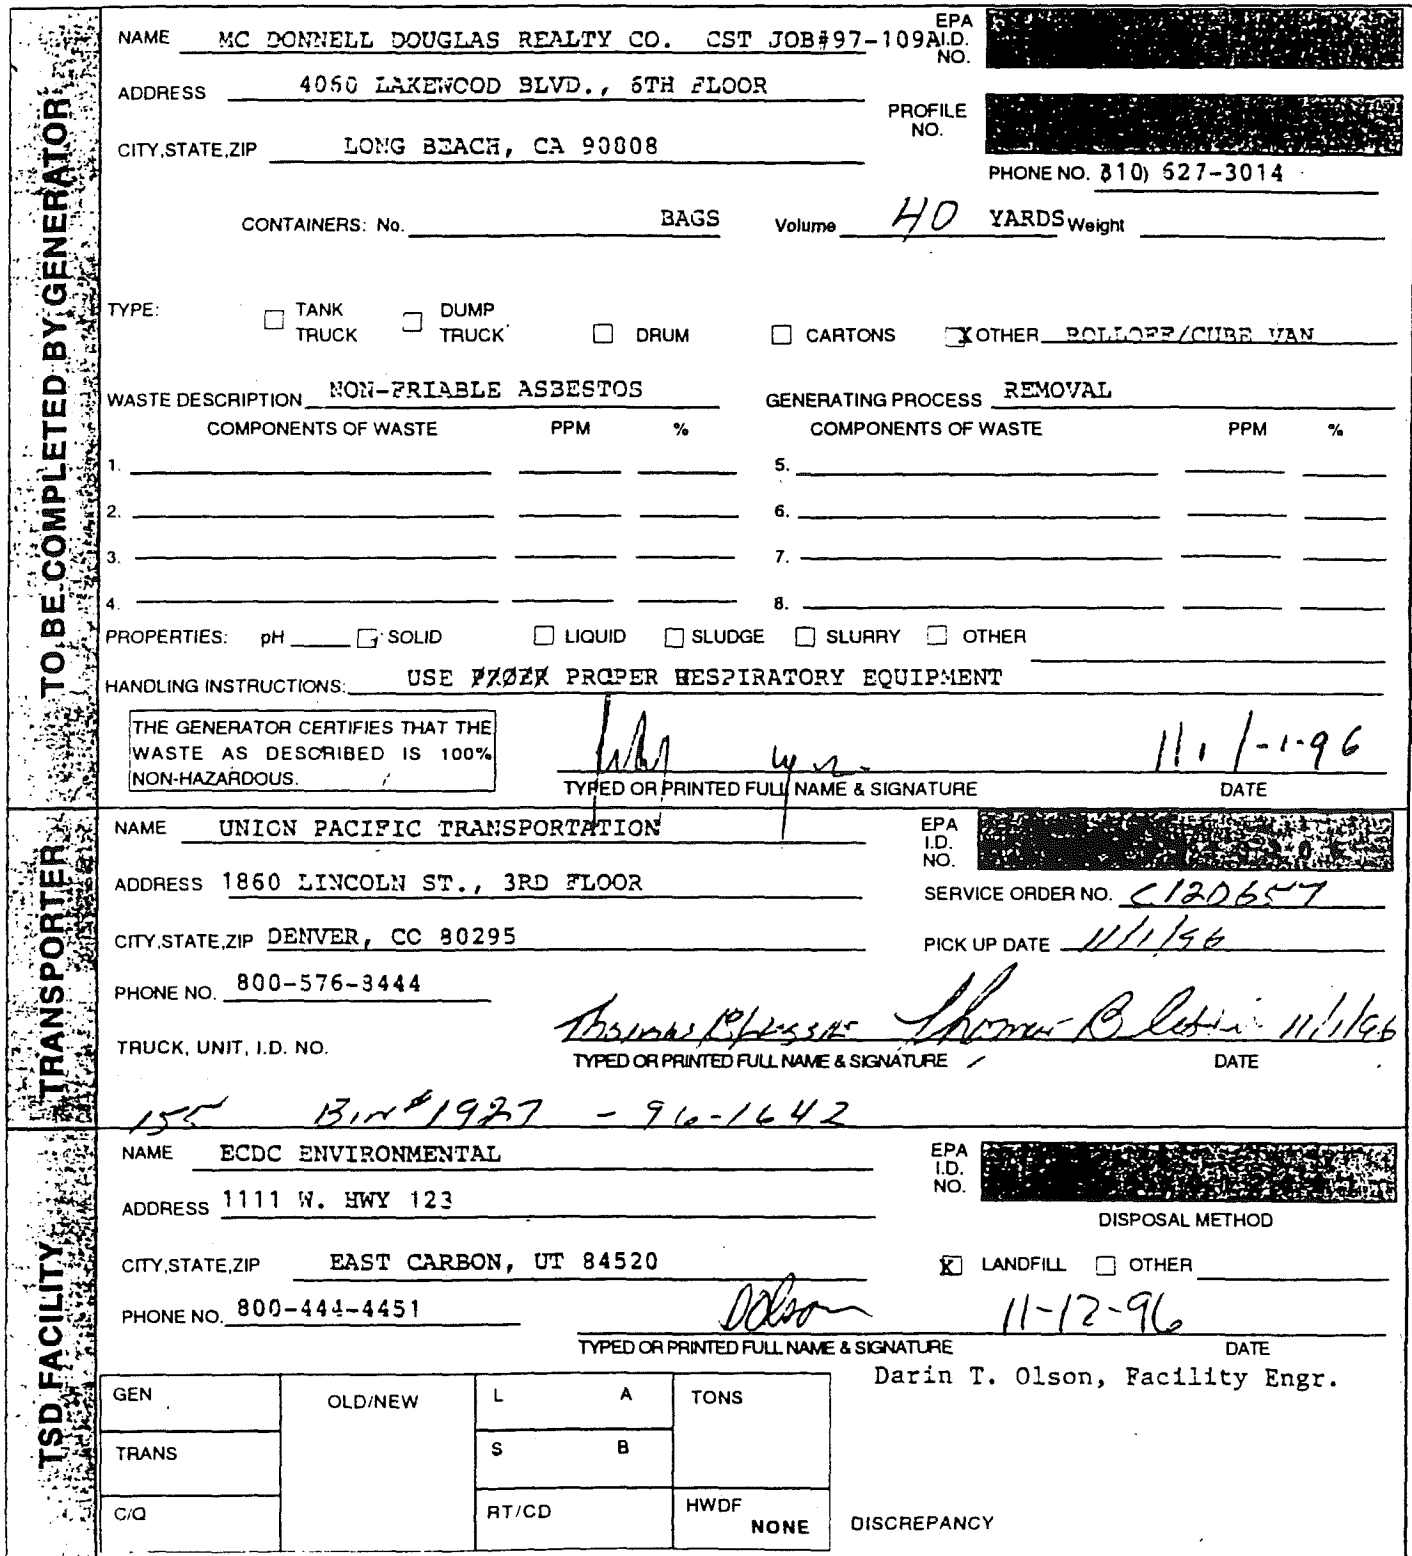 TO BE COMPLETED BY GENERATOR
NAME MC DONNELL DOUGLAS REALTY CO. CST JOB#97-109A EPA I.D. NO.
ADDRESS 4060 LAKEWOOD BLVD., 6TH FLOOR
PROFILE NO.
CITY,STATE,ZIP LONG BEACH, CA 90808
PHONE NO. 310) 627-3014
CONTAINERS: No. BAGS Volume 40 YARDS Weight
TYPE: TANK TRUCK DUMP TRUCK DRUM CARTONS X OTHER ROLLOFF/CUBE VAN
WASTE DESCRIPTION NON-FRIABLE ASBESTOS GENERATING PROCESS REMOVAL
COMPONENTS OF WASTE PPM % COMPONENTS OF WASTE PPM %
1. 5.
2. 6.
3. 7.
4. 8.
PROPERTIES: pH SOLID LIQUID SLUDGE SLURRY OTHER
HANDLING INSTRUCTIONS: USE PROPER RESPIRATORY EQUIPMENT
THE GENERATOR CERTIFIES THAT THE
WASTE AS DESCRIBED IS 100%
NON-HAZARDOUS.
11-1-96
TYPED OR PRINTED FULL NAME & SIGNATURE DATE
TRANSPORTER
NAME UNION PACIFIC TRANSPORTATION EPA I.D. NO.
ADDRESS 1860 LINCOLN ST., 3RD FLOOR
SERVICE ORDER NO. C120657
CITY,STATE,ZIP DENVER, CO 80295
PICK UP DATE 11/1/96
PHONE NO. 800-576-3444
Thomas B 11/1/96
TRUCK, UNIT, I.D. NO.
TYPED OR PRINTED FULL NAME & SIGNATURE DATE
155 Bin#1927 - 96-1642
TSD FACILITY
NAME ECDC ENVIRONMENTAL EPA I.D. NO.
ADDRESS 1111 W. HWY 123
DISPOSAL METHOD
CITY,STATE,ZIP EAST CARBON, UT 84520
X LANDFILL OTHER
PHONE NO. 800-444-4451 DOlson 11-12-96
TYPED OR PRINTED FULL NAME & SIGNATURE DATE
Darin T. Olson, Facility Engr.
GEN OLD/NEW L A TONS
TRANS S B
C/Q RT/CD HWDF NONE DISCREPANCY